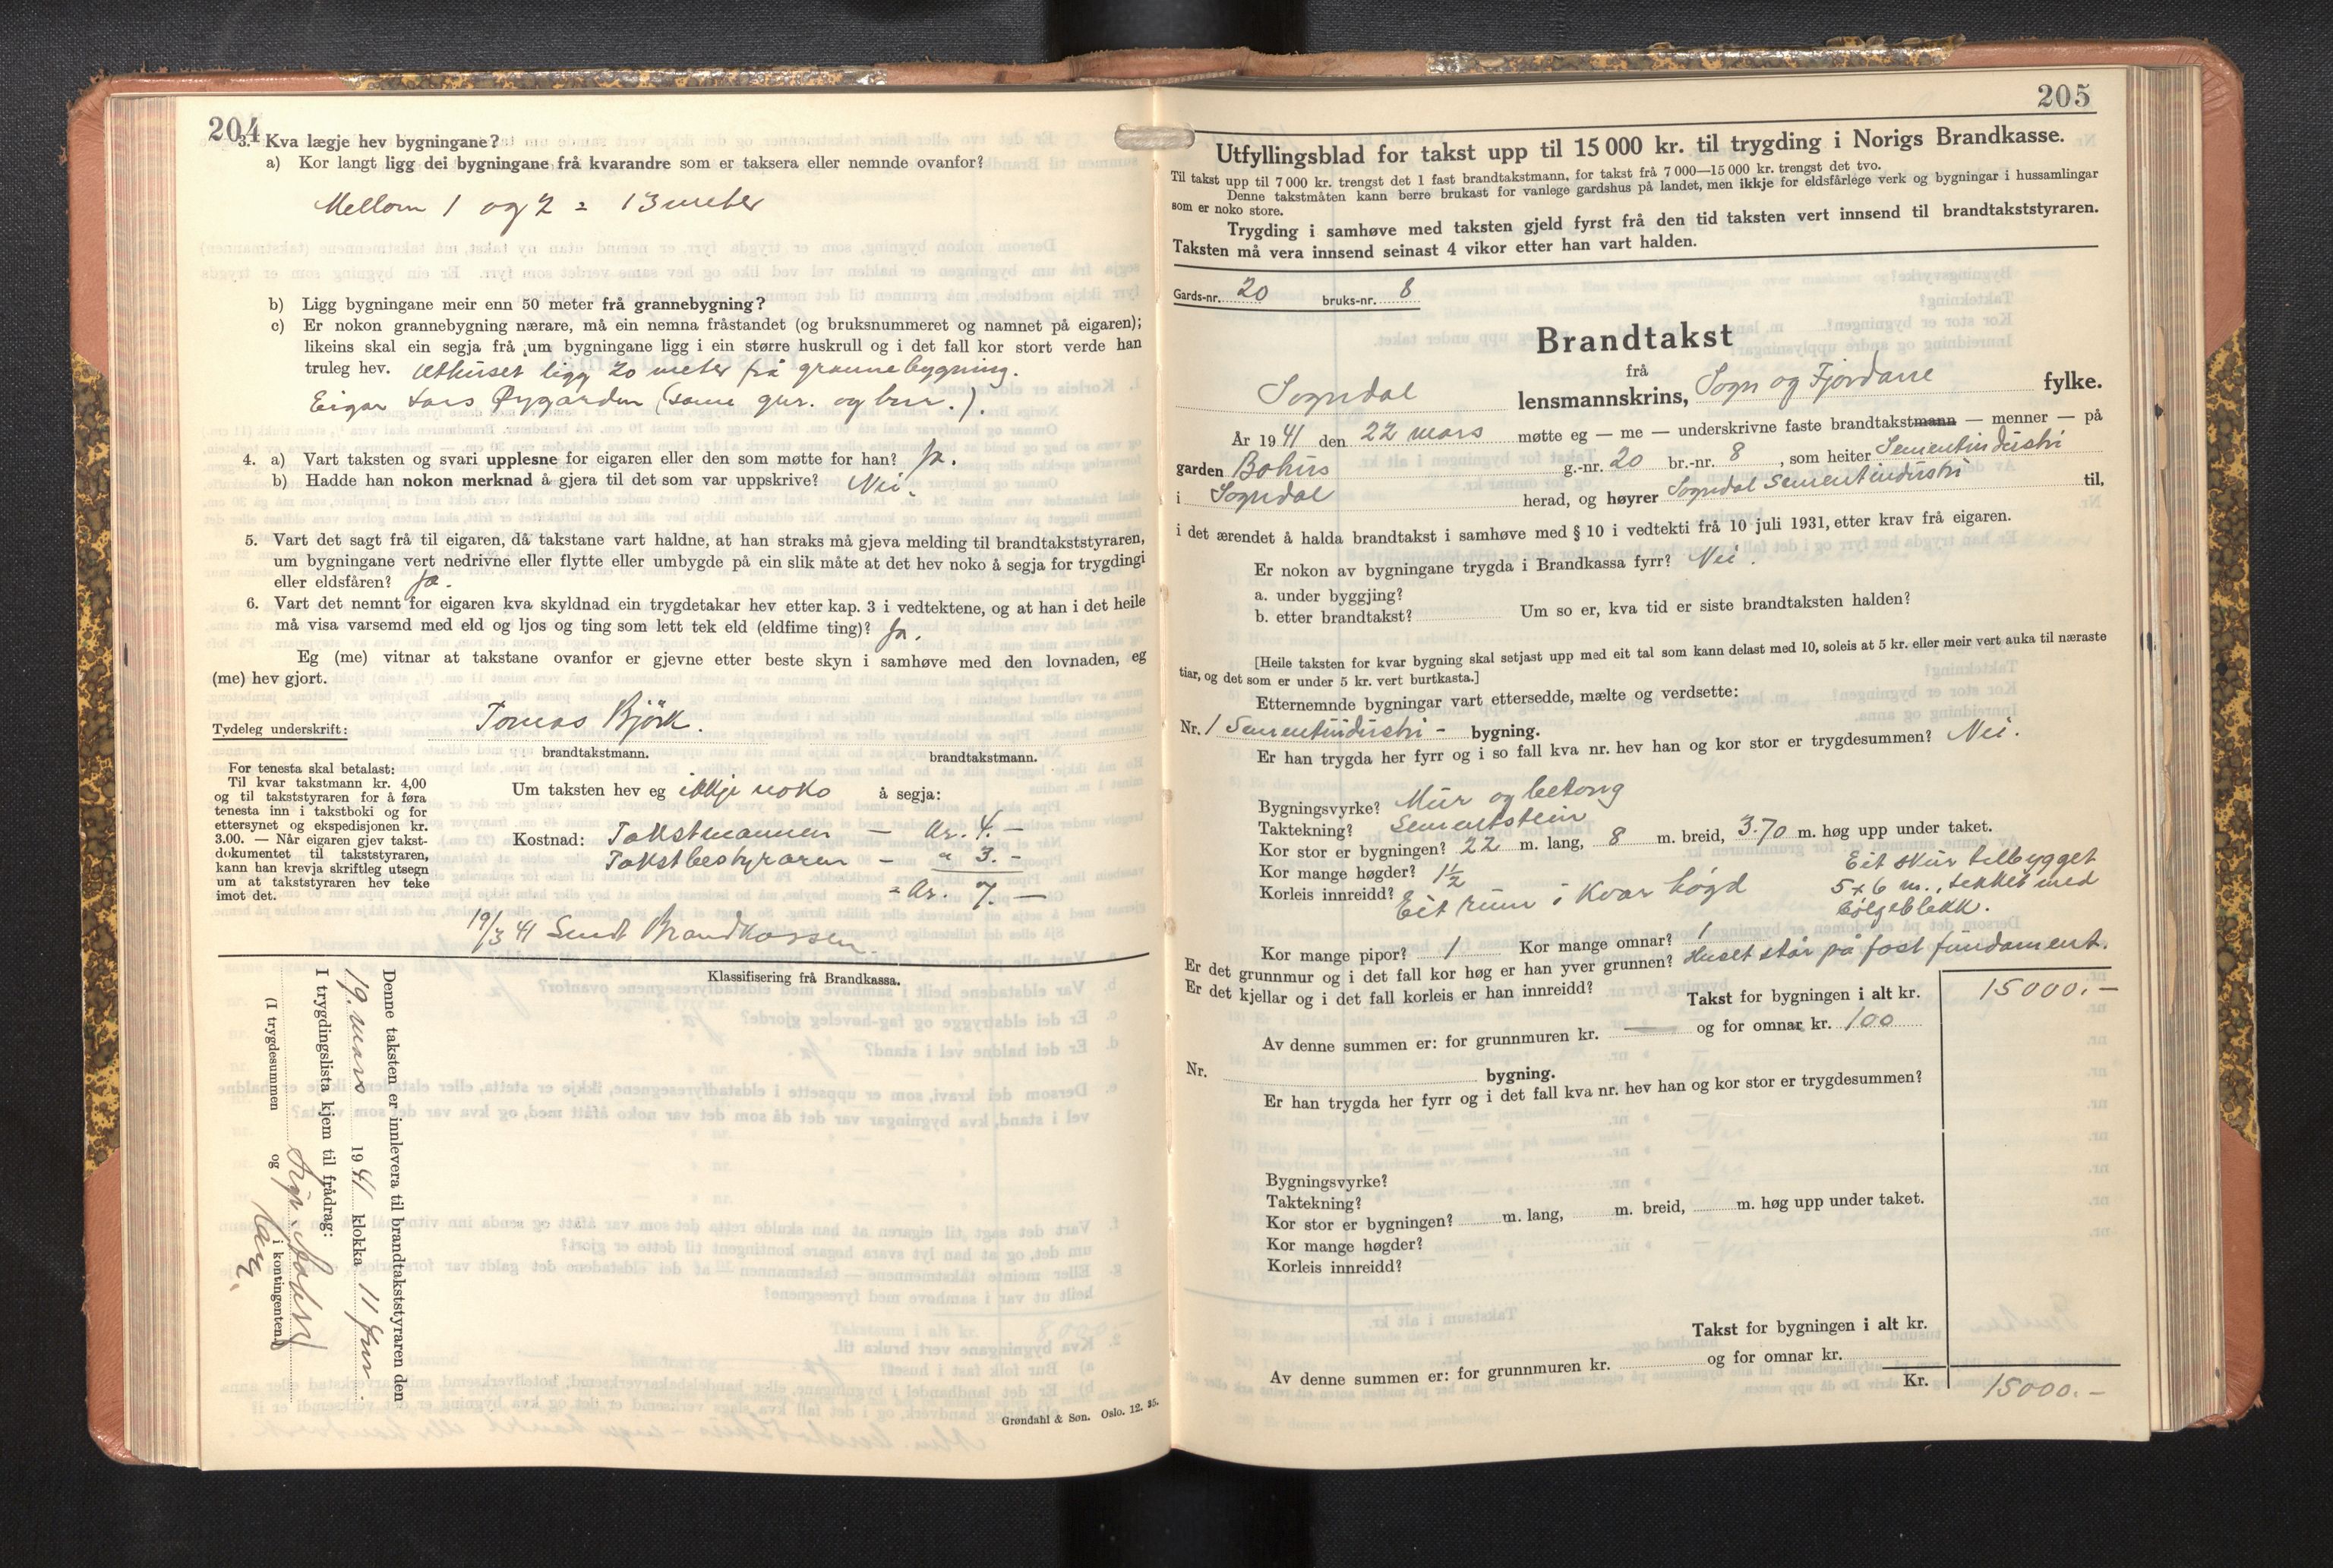 204
3. Kva lægje hev bygningane?
a) Kor langt ligg dei bygningane frå kvarandre som er taksera eller nemnde ovanfor?
Mellom 1 og 2 = 13 meter
b) Ligg bygningane meir enn 50 meter frå grannebygning?
c) Er nokon grannebygning nærare, må ein nemna fråstandet (og bruksnummeret og namnet på eigaren);
likeins skal ein segja frå um bygningane ligg i ein større huskrull og i det fall kor stort verde han
truleg hev. Uthuset ligg 20 meter frå grannebygning.
Eigar Lars Øygarden (same gnr. og bnr.).
4. a) Vart taksten og svari upplesne for eigaren eller den som møtte for han? Ja.
b) Hadde han nokon merknad å gjera til det som var uppskrive? Nei.
5. Vart det sagt frå til eigaren, då takstane vart haldne, at han straks må gjeva melding til brandtakststyraren,
um bygningane vert nedrivne eller flytte eller umbygde på ein slik måte at det hev noko å segja for trygdingi
eller eldsfåren? Ja.
6. Vart det nemnt for eigaren kva skyldnad ein trygdetakar hev etter kap. 3 i vedtektene, og at han i det heile
må visa varsemd med eld og ljos og ting som lett tek eld (eldfime ting)? Ja.
Eg (me) vitnar at takstane ovanfor er gjevne etter beste skyn i samhøve med den lovnaden, eg
(me) hev gjort.
Tydeleg underskrift: Tomas Björk.
brandtakstmann. brandtakstmann.
For tenesta skal betalast:
Til kvar takstmann kr. 4,00
og til takststyraren for å føra
tenesta inn i takstboki og for
ettersynet og ekspedisjonen kr.
3.00. — Når eigaren gjev takst-
dokumentet til takststyraren,
kann han krevja skriftleg utsegn
um at takststyraren hev teke
imot det.
Um taksten hev eg ikkje noko å segja:
Kostnad: Takstmannen — kr. 4.—
Takstbestyraren — " 3.—
= kr. 7.—
19/3 41 Sendt Brandkassen.
Klassifisering frå Brandkassa.
Denne taksten er innlevera til brandtakststyraren den
19. mars 1941 klokka 11 fm.
I trygdingslista kjem til frådrag:
(I trygdesummen og i kontingenten.)
Grøndahl & Søn. Oslo. 12. 35.
205
Utfyllingsblad for takst upp til 15 000 kr. til trygding i Norigs Brandkasse.
Til takst upp til 7 000 kr. trengst det 1 fast brandtakstmann, for takst frå 7 000—15 000 kr. trengst det tvo.
Denne takstmåten kann berre brukast for vanlege gardshus på landet, men ikkje for eldsfårlege verk og bygningar i hussamlingar
som er noko store.
Trygding i samhøve med taksten gjeld fyrst frå den tid taksten vert innsend til brandtakststyraren.
Taksten må vera innsend seinast 4 vikor etter han vart halden.
Gards-nr. 20 bruks-nr. 8
Brandtakst
frå
Sogndal lensmannskrins, Sogn og Fjordane fylke.
År 1941 den 22 mars møtte eg — me — underskrivne faste brandtakstmann — menner — på
garden Bahus g.-nr. 20 br.-nr. 8, som heiter Sementindustri
i Sogndal herad, og høyrer Sogndal Sementindustri til,
i det ærendet å halda brandtakst i samhøve med § 10 i vedtekti frå 10 juli 1931, etter krav frå eigaren.
Er nokon av bygningane trygda i Brandkassa fyrr? Nei.
a. under byggjing?
b. etter brandtakst? Um so er, kva tid er siste brandtaksten halden?
[Heile taksten for kvar bygning skal setjast upp med eit tal som kann delast med 10, soleis at 5 kr. eller meir vert auka til næraste
tiar, og det som er under 5 kr. vert burtkasta.]
Etternemnde bygningar vart ettersedde, mælte og verdsette:
Nr. 1 Sementindustri - bygning.
Er han trygda her fyrr og i so fall kva nr. hev han og kor stor er trygdesummen? Nei.
Bygningsvyrke? Mur og betong
Taktekning? Sementstein
Kor stor er bygningen? 22 m. lang, 8 m. breid, 3.70 m. høg upp under taket.
Kor mange høgder? 1½
Korleis innreidd? Eit rum i kvar høgd
Eit skur tilbygget
5x6 m., tekket med
bølgeblekk.
Kor mange pipor? 1 Kor mange omnar? 1
Er det grunnmur og i det fall kor høg er han yver grunnen? Huset står på fast fundament.
Er det kjellar og i det fall korleis er han innreidd?
Takst for bygningen i alt kr. 15000.—
Av denne summen er: for grunnmuren kr. — og for omnar kr. 100
Nr. bygning.
Er han trygda her fyrr og i det fall kva nr. hev han og kor stor er trygdesummen?
Bygningsvyrke?
Taktekning?
Kor stor er bygningen? m. lang, m. breid, m. høg upp under taket.
Kor mange høgder?
Korleis innreidd?
Takst for bygningen i alt kr.
Av denne summen er: for grunnmuren kr. og for omnar kr.
Kr. 15000.—